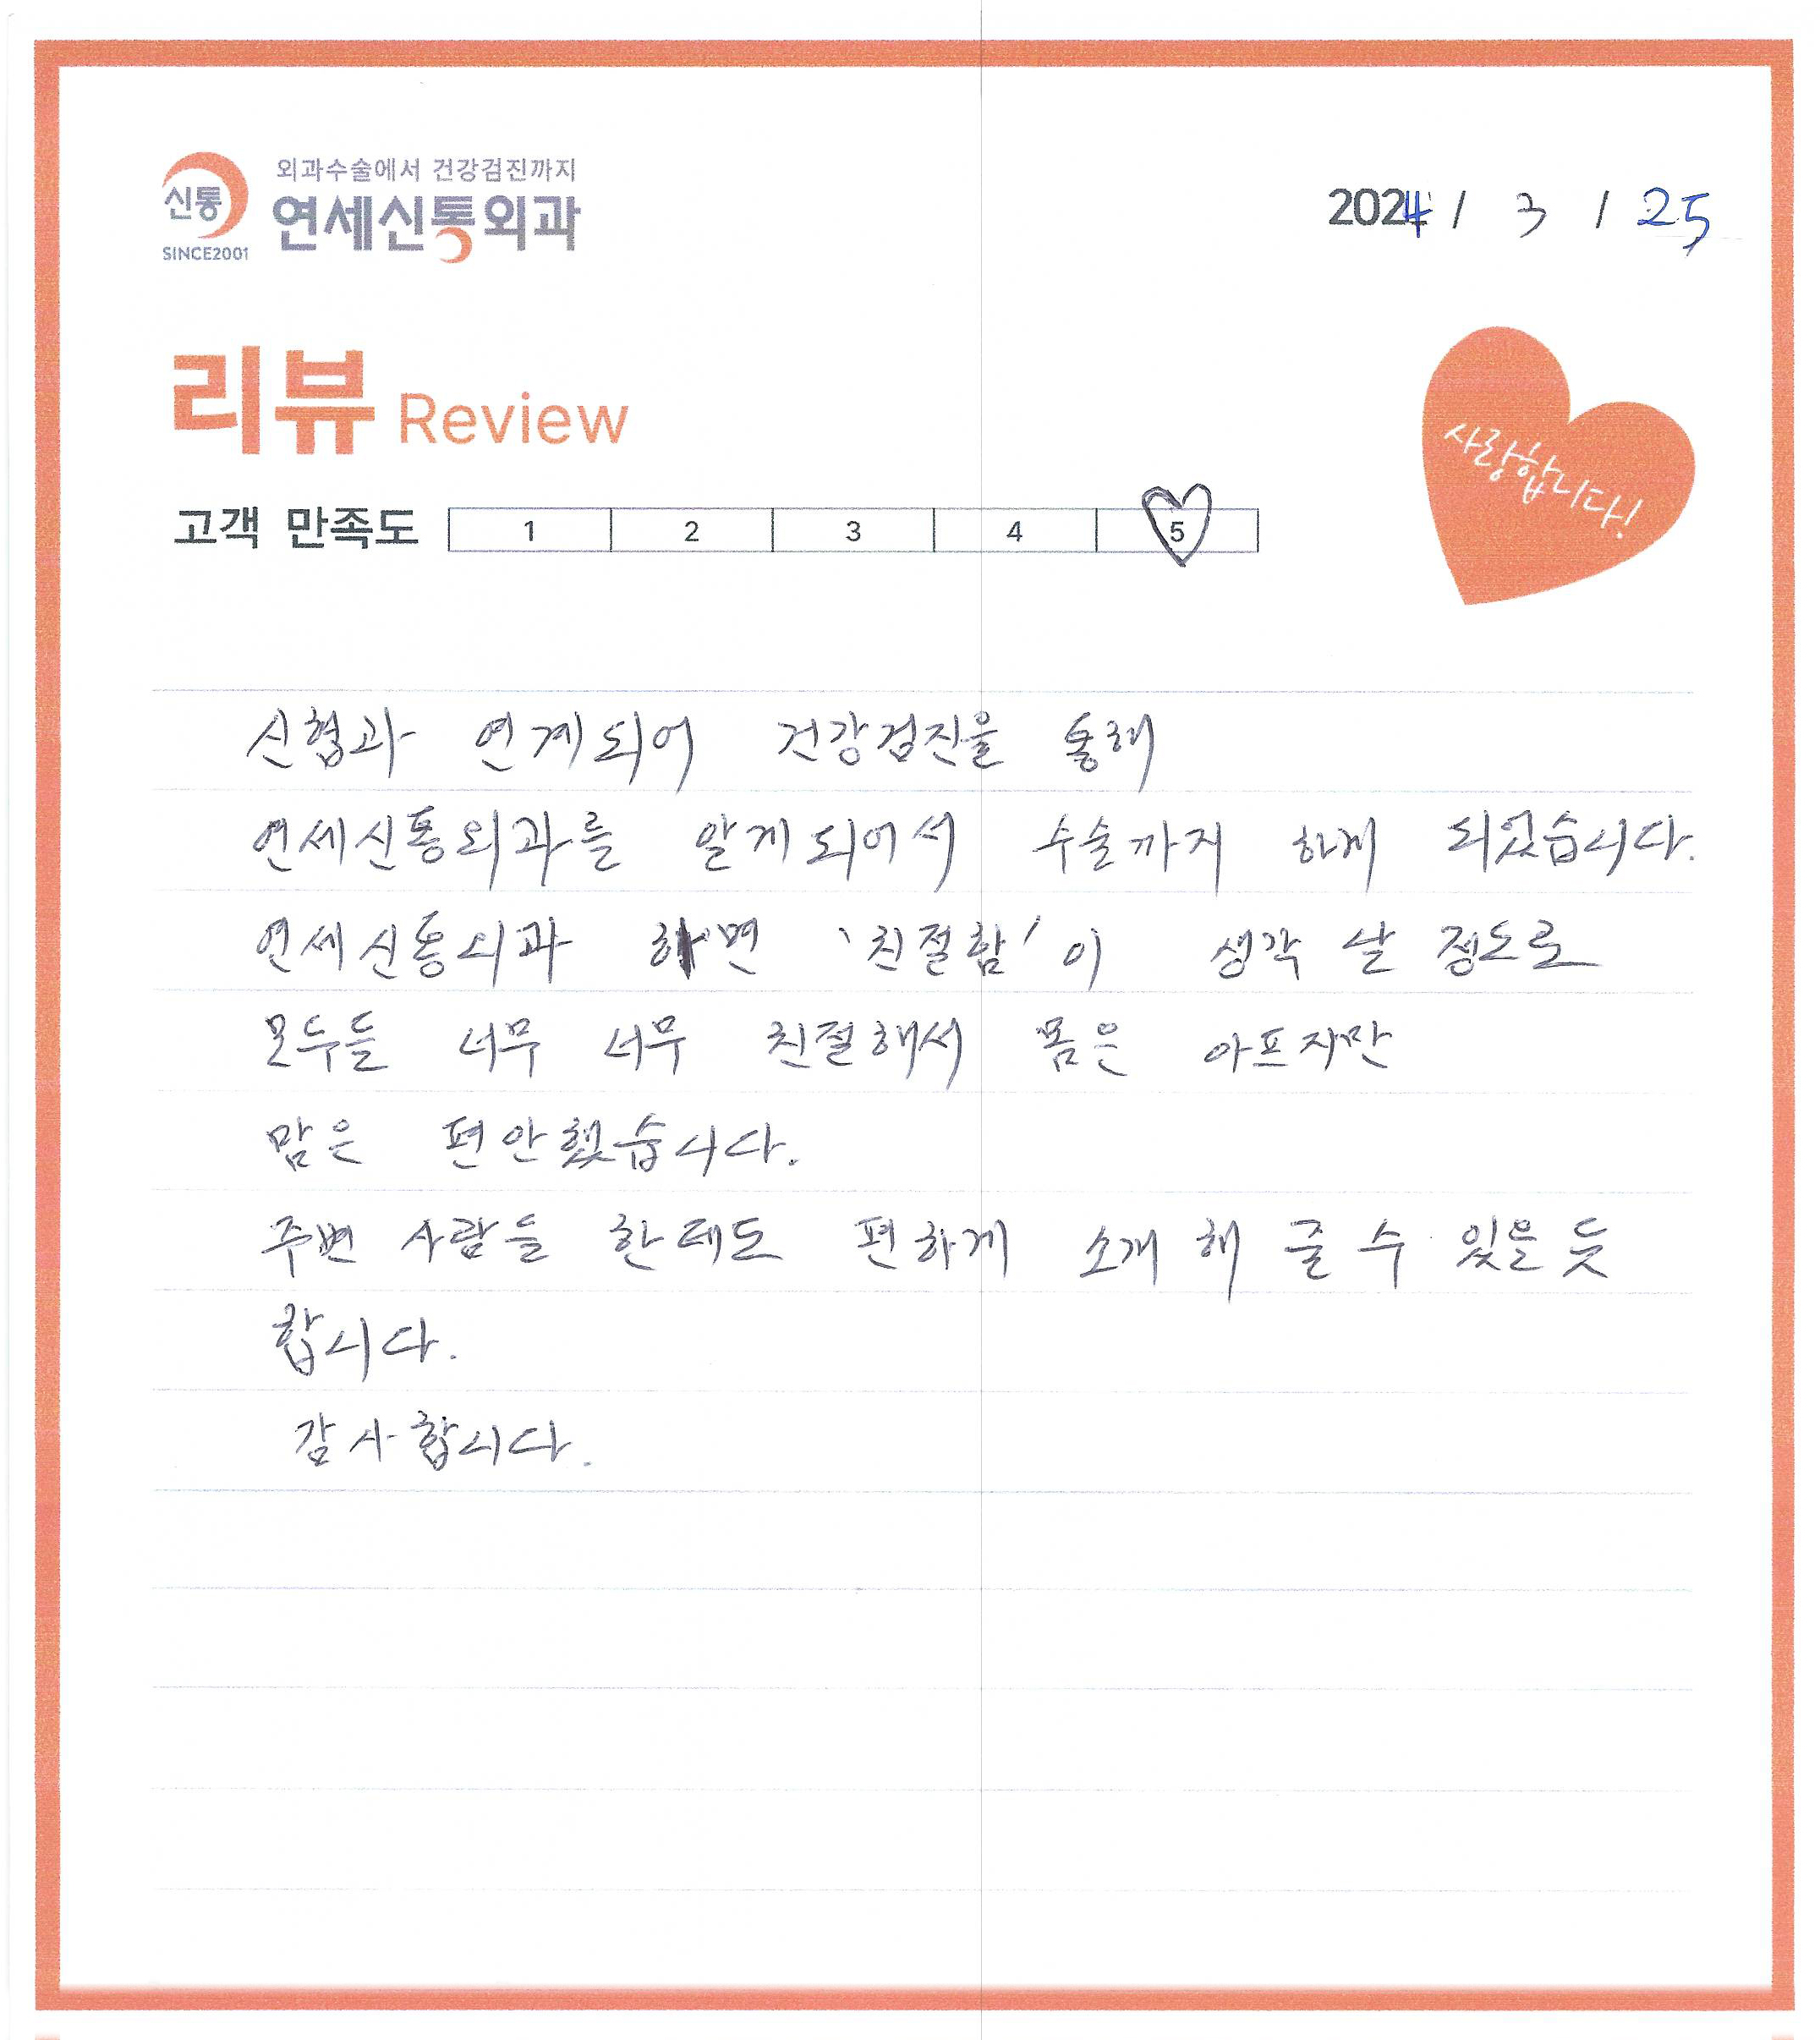 외과수술에서 건강검진까지
신통
연세신통외과
SINCE2001
2024 / 3 / 25
리뷰 Review
사랑합니다!
고객 만족도 1 2 3 4 5
신협과 연계되어 건강검진을 통해
연세신통외과를 알게되어서 수술까지 하게 되었습니다.
연세신통외과 하면 '친절함'이 생각 날 정도로
모두들 너무 너무 친절해서 몸은 아프지만
맘은 편안했습니다.
주변 사람들 한테도 편하게 소개 해 줄 수 있을 듯
합니다.
감사합니다.